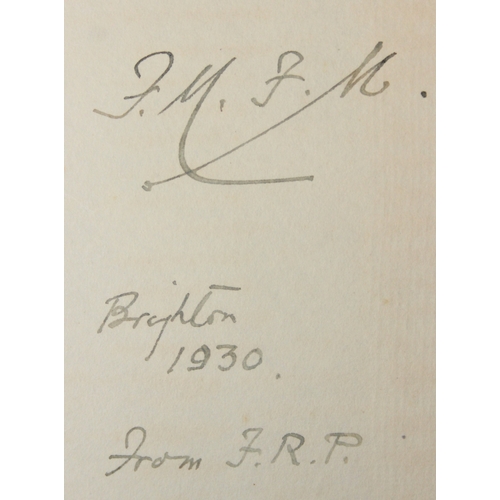 F.M.F.M.
Brighton
1930.
From F.R.P.